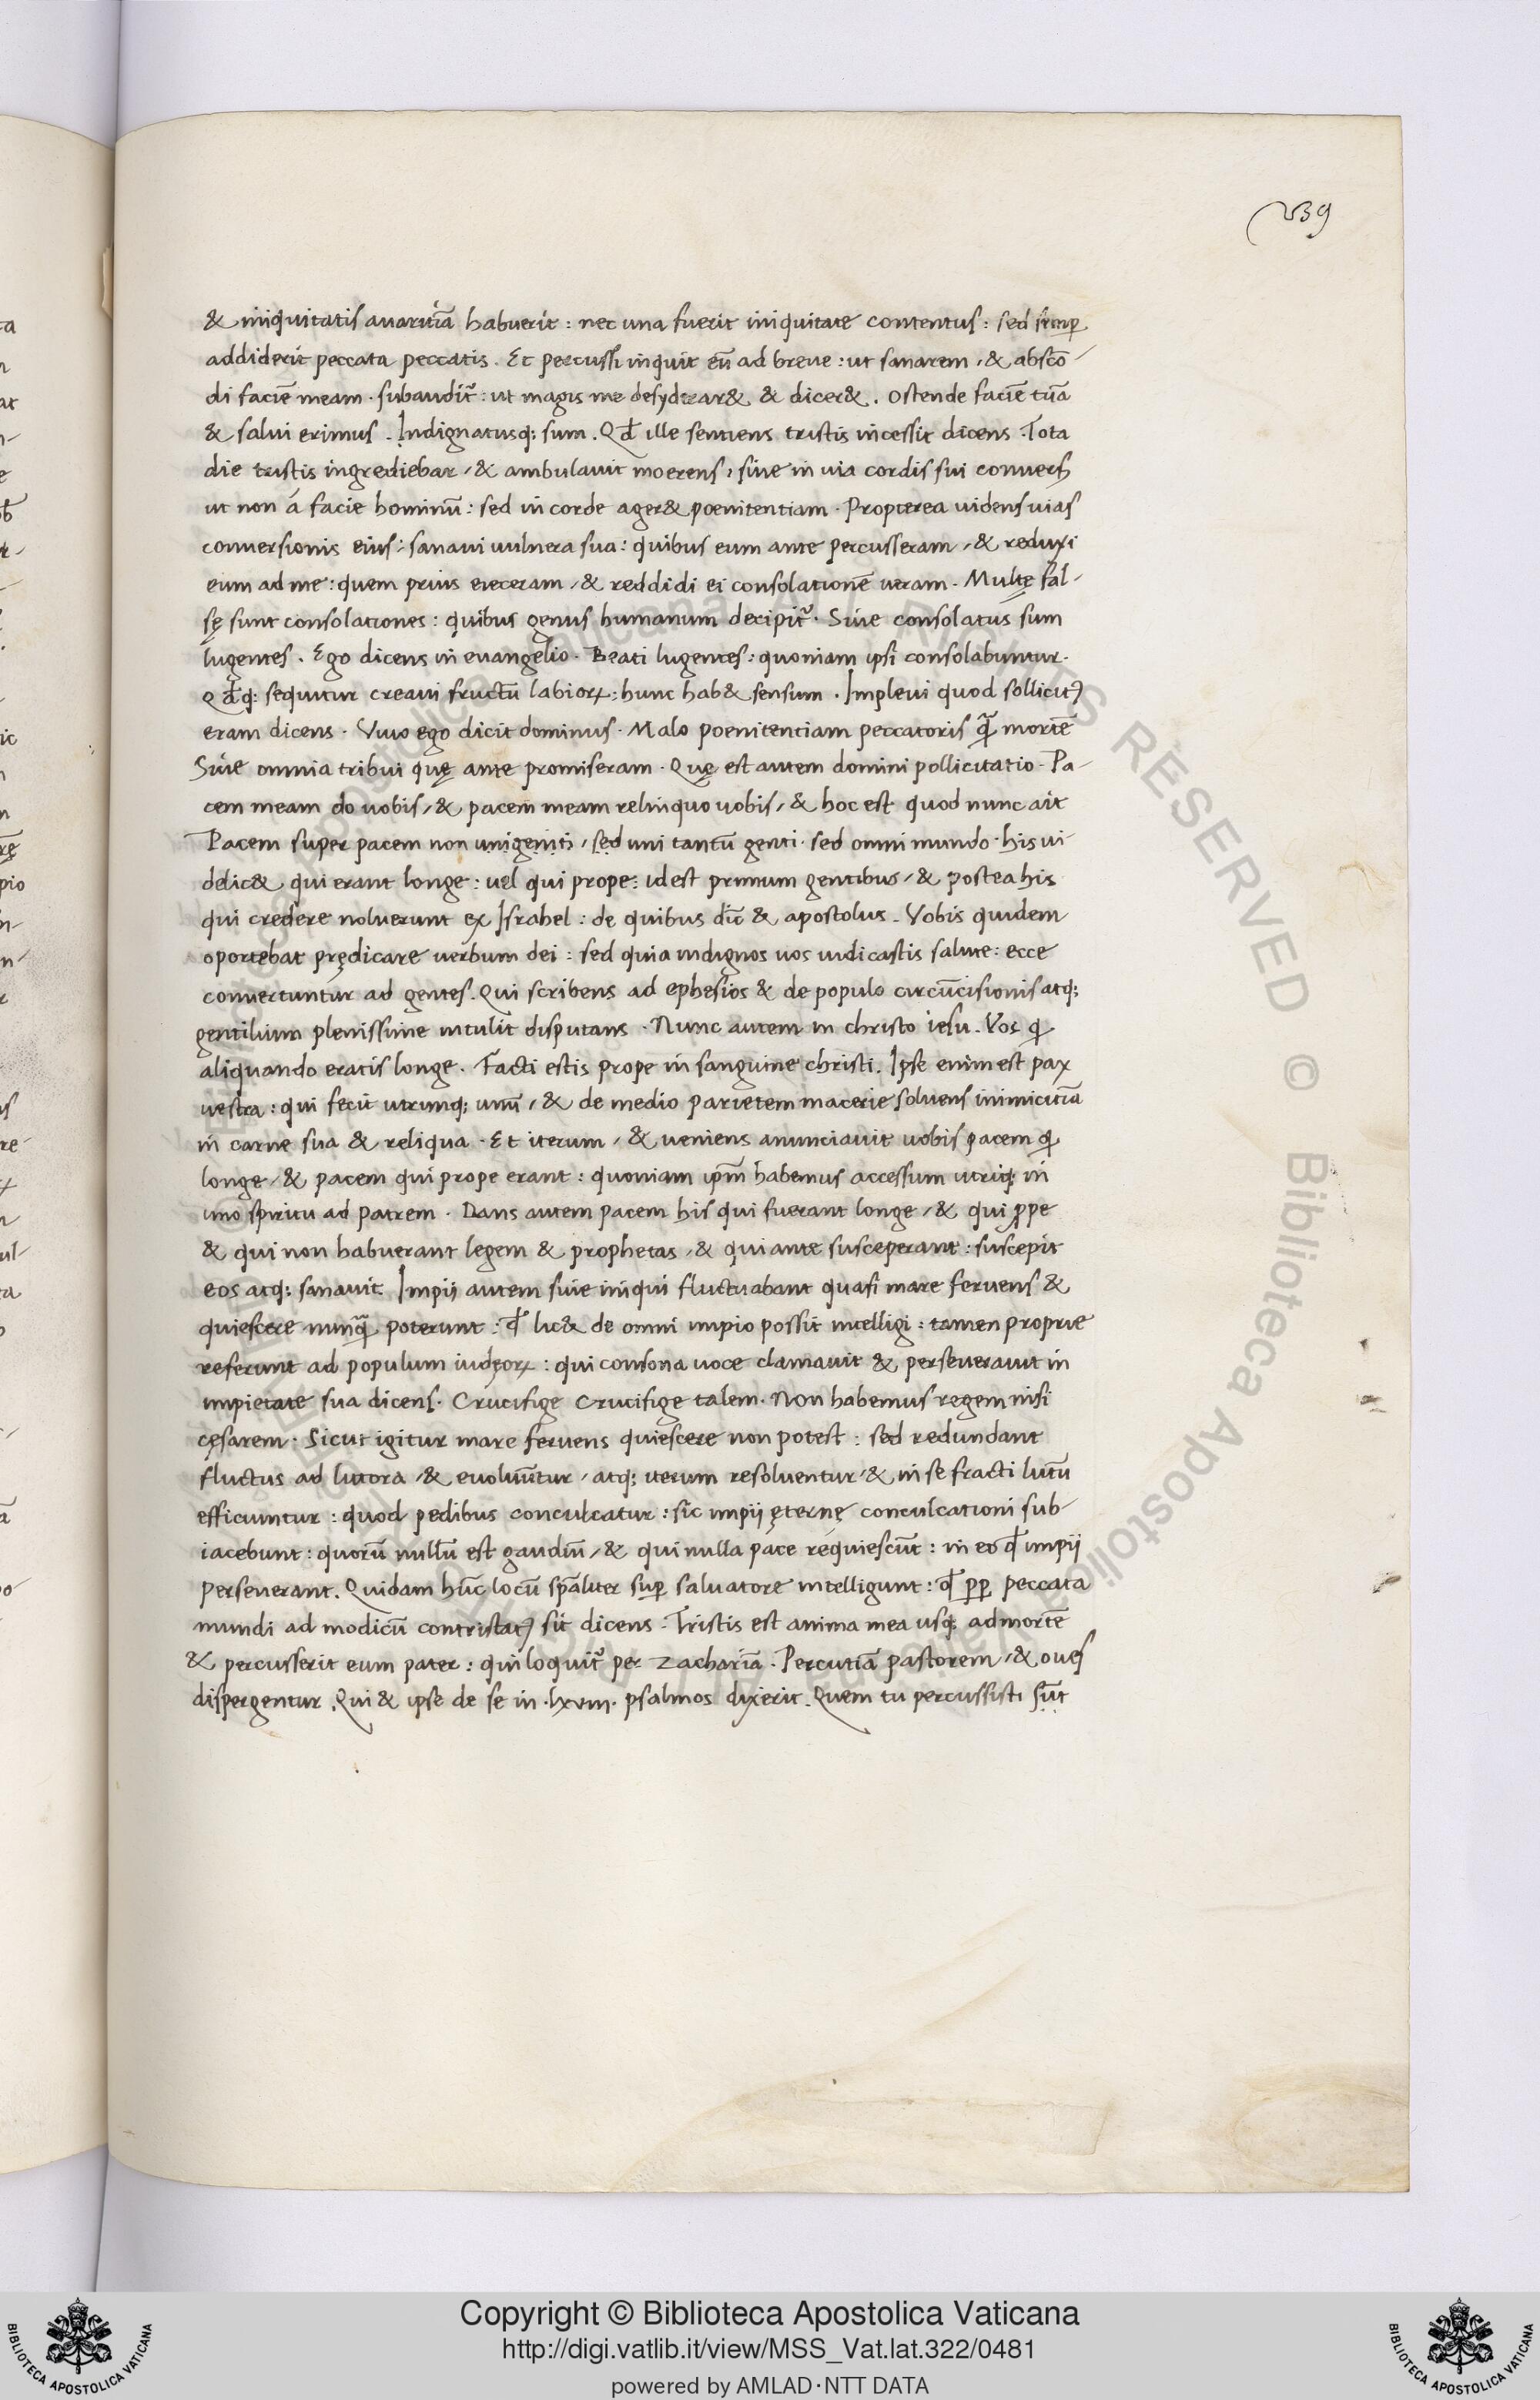 239
& iniquitatis auaritiā habuerit : nec una fuerit iniquitate contentus : sed semꝑ
addiderit peccata peccatis . Et percussi inquit eū ad breue : ut sanarem , & abscō-
di faciē meam . subaudit᷑ : ut magis me desyderar& & dicer& . Ostende faciē tuā
& salui erimus . Indignatusq; sum . Qđ ille sentiens tristis incessit dicens . Tota
die tristis ingrediebar , & ambulauit moerens , siue in uia cordis sui
ut non á facie hominū : sed in corde ager& poenitentiam . Propterea uidens uias
conuersionis eius : sanaui uulnera sua : quibus eum ante percusseram , & reduxi
eum ad me : quem prius eieceram , & reddidi ei consolationē ueram . Multę fal-
sę sunt consolationes : quibus genus humanum decipit᷑ . Siue consolatus sum
lugentes . Ego dicens in euangelio . Beati lugentes : quoniam ipsi consolabuntur .
Qđq; sequitur creaui fructū labioꝝ : hunc hab& sensum . Impleui quod sollicitꝰ
eram dicens . Viuo ego dicit dominus . Malo poenitentiam peccatoris q̄ mortē
Siue omnia tribui quę ante promiseram . Quę est autem domini pollicitatio . Pa-
cem meam do uobis , & pacem meam relinquo uobis , & hoc est quod nunc ait
Pacem super pacem non unigeniti , sed uni tantū genti . sed omni mundo . his ui-
delic& qui erant longe : uel qui prope : id est primum gentibus , & postea his
qui credere noluerunt ex Israhel : de quibus dic̄ & apostolus . Vobis quidem
oportebat prędicare uerbum dei : sed quia indignos uos iudicastis salute : ecce
conuertuntur ad gentes . Qui scribens ad ephesios & de populo circūcisionis atq;
gentilium plenissime intulit disputans . Nunc autem in christo iesu . Vos ꝗ
aliquando eratis longe . Facti estis prope in sanguine christi . Ipse enim est pax
uestra : qui fecit utrunq; unū , & de medio parietem macerie soluens inimicitiā
in carne sua & reliqua . Et iterum , & ueniens anunciauit uobis pacem ꝗ
longe , & pacem qui prope erant : quoniam ip̄m habemus accessum utriq; in
uno spiritu ad patrem . Dans autem pacem his qui fuerant longe , & qui ꝓpe
& qui non habuerant legem & prophetas , & qui ante susceperant : suscepit
eos atq; sanauit . Impij autem siue iniqui fluctuabant quasi mare feruens &
quiescere nunq̄ poterunt : qđ lic& de omni impio possit intelligi : tamen proprie
referunt ad populum iudęoꝝ : qui consona uoce clamauit & perseuerauit in
impietate sua dicens . Crucifige Crucifige talem . Non habemus regem nisi
cęsarem . Sicut igitur mare feruens quiescere non potest : sed redundant
fluctus ad litora , & euoluūtur , atq; iterum resoluentur , & in se fracti lutū
efficiuntur : quod pedibus conculcatur : sic impij ęternę conculcationi sub-
iacebunt : quorū nullū est gaudiū , & qui nulla pace requiescūt : in eo qđ impij
perseuerant . Quidam hūc locū spāliter suꝑ saluatore intelligunt : qđ ꝓꝑ peccata
mundi ad modicū contristatꝰ sit dicens . Tristis est anima mea usq; ad mortē
& percusserit eum pater : qui loquit᷑ per Zachariā . Percutiā pastorem , & oues
dispergentur . Qui & ipse de se in .lxviii. psalmos dixerit . Quem tu percussisti sūt
RESERVED © Biblioteca Apostolica Vaticana
Copyright © Biblioteca Apostolica Vaticana
http://digi.vatlib.it/view/MSS_Vat.lat.322/0481
powered by AMLAD·NTT DATA
BIBLIOTECA APOSTOLICA VATICANA
BIBLIOTECA APOSTOLICA VATICANA